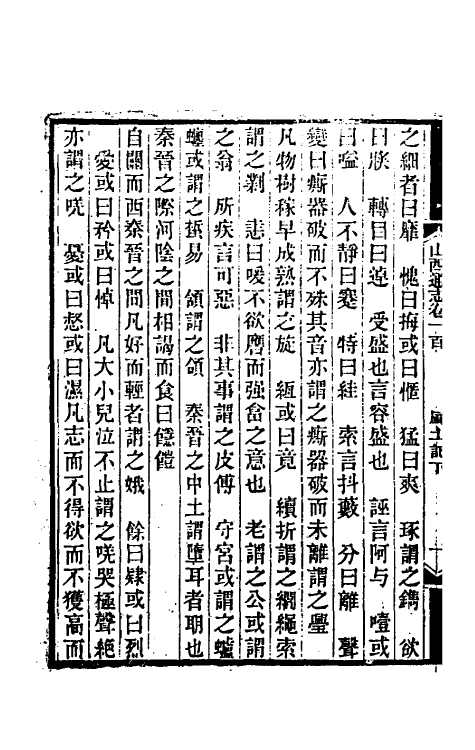 山西通志卷一百　風土記下
之細者曰靡　愧曰挴或曰㥏　猛曰爽　琢謂之鐫　欲
曰　轉目曰逴　受盛也言容盛也　誣言阿与　噎或
曰嗌　人不靜曰　特曰絓　索言抖藪　分曰離　聲
變曰㾷器破而不殊其音亦謂之㾷器破而未離謂之璺
凡物樹稼早成熟謂之旋　縆或曰竟　續折謂之　繩索
謂之剿　恚曰喛不欲譍而强㕎之意也　老謂之公或謂
之翁　所疾言可惡　非其事謂之皮傅　守宮或謂之蠦
䗺或謂之蜥易　頷謂之頜　秦晉之中土謂墮耳者䎳也
秦晉之際河陰之間相謁而食曰㥯䭓
自關而西秦晉之間凡好而輕者謂之娥　餘曰肄或曰烈
愛或曰矜或曰悼　凡大小兒泣不止謂之唴哭極聲絕
亦謂之唴　憂或曰惄或曰濕凡志而不得欲而不獲高而